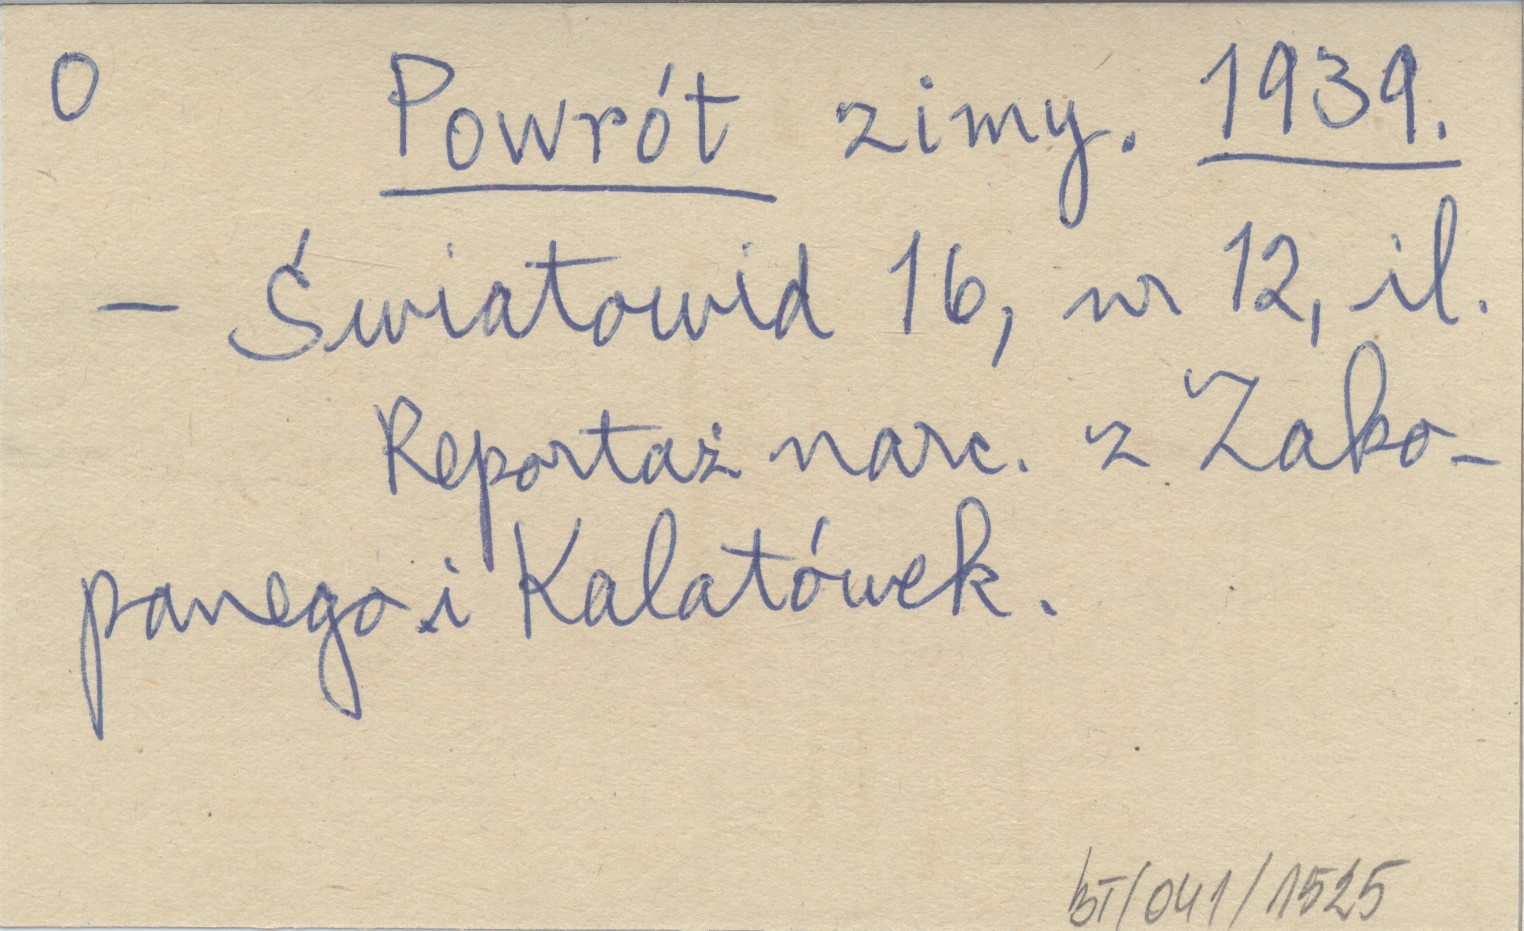 O Powrót zimy. 1939.
- Światowid 16, nr 12, il.
Reportaż narc. z Zako-
panego i Kalatówek.
BT/041/1525